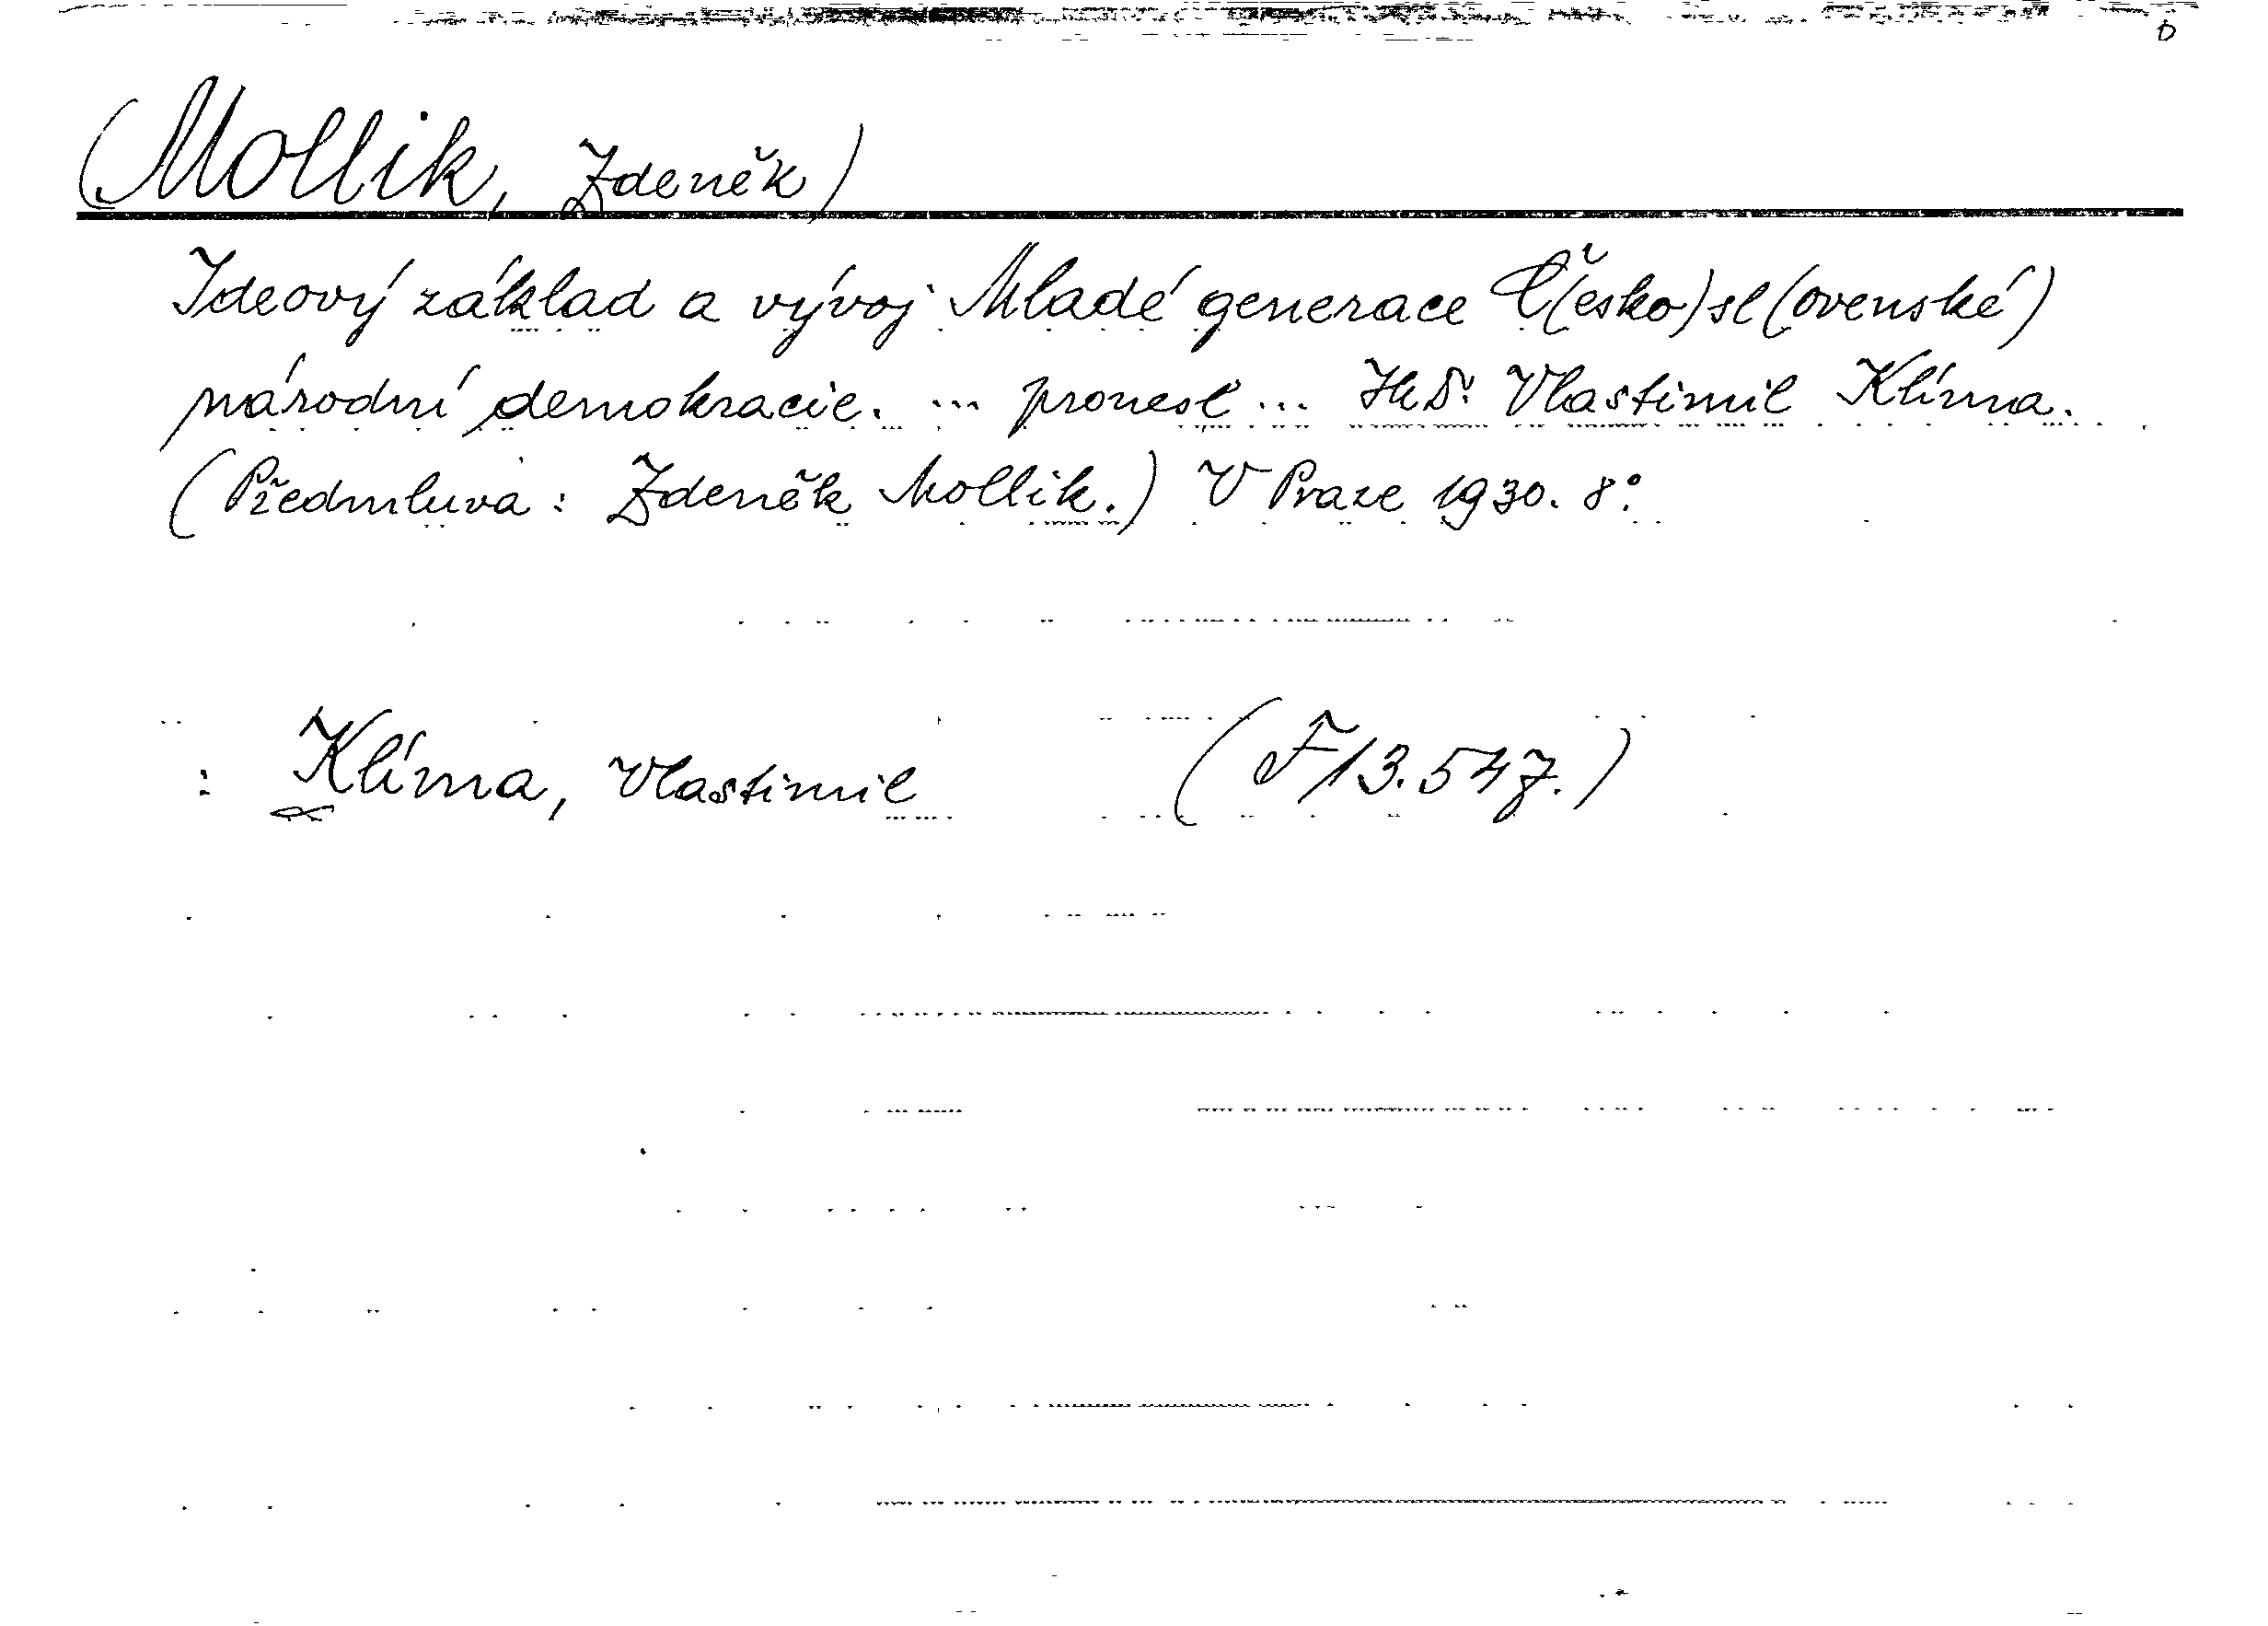 (Mollik, Zdeněk)
Ideový základ a vývoj Mladé generace Č(esko)sl(ovenské)
národní demokracie. ... pronesl ... JUDr. Vlastimil Klíma.
(Předmluva: Zdeněk Mollik.) V Praze 1930. 8°.
: Klíma, Vlastimil (F 13.547.)